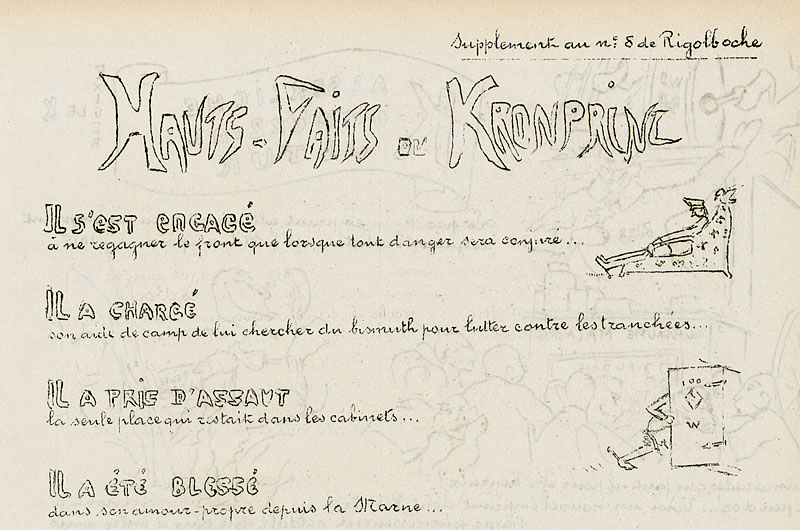 Supplement au nº 8 de Rigolboche
HAUTS-FAITS DU KRONPRINZ
IL S'EST ENGAGÉ
à ne regagner le front que lorsque tout danger sera conjuré...
IL A CHARGÉ
son aide de camp de lui chercher du bismuth pour lutter contre les tranchées...
IL A PRIS D'ASSAUT
la seule place qui restait dans les cabinets...
100
W
IL A ÉTÉ BLESSÉ
dans son amour-propre depuis la Marne...